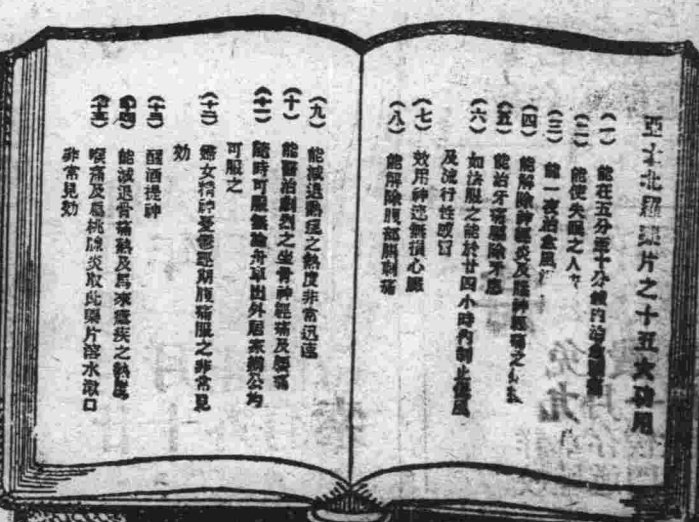 亞士北羅藥片之十五大功用
(一) 能在五分至十分鐘內治愈頭痛
(二) 能使失眠之人
(三) 能一夜治愈風
(四) 能解除神經炎及腦神經痛之
(五) 能治牙痛解除牙患
(六) 如法服之能於廿四小時內制止傷風
及流行性感冒
(七) 效用神速無損心臟
(八) 能解除腹部刺痛
(九) 能減退熱症之熱度非常迅速
(十) 能醫治劇烈之坐骨神經痛及腰痛
(十一) 隨時可服無論舟車出外居家辦公均
可服之
(十二) 婦女精神憂鬱經期腹痛服之非常見
効
(十三) 醒酒提神
(十四) 能減退骨痛熱及馬來瘧疾之熱度
(十五) 喉痛及扁桃腺炎取此藥片溶水漱口
非常見効